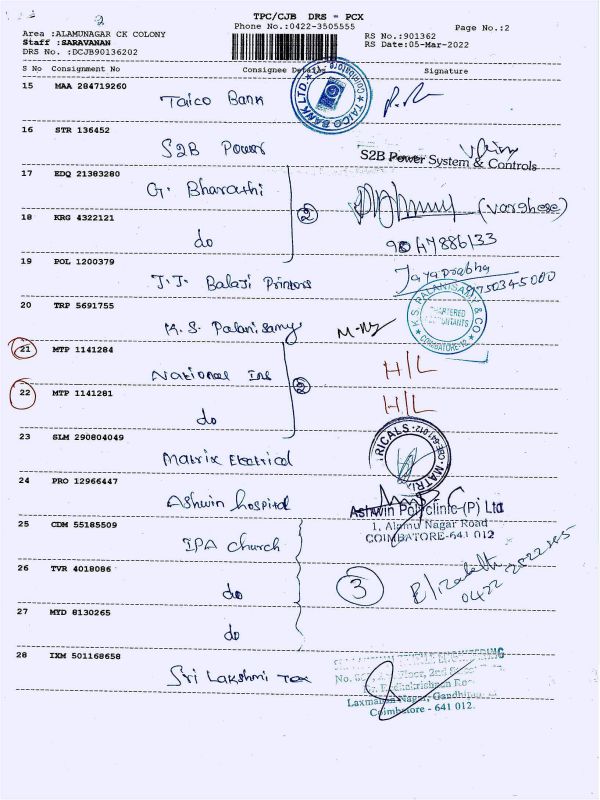 2
TPC/CJB DRS - PCX
Phone No.:0422-3505555
Page No.:2
Area :ALAMUNAGAR CK COLONY
Staff :SARAVANAN
DRS No. :DCJB90136202
RS No.:901362
RS Date:05-Mar-2022
S No Consignment No Consignee Details Signature
15 MAA 284719260 Taico Bank
TAICO BANK LTD. Coimbatore
16 STR 136452 S2B Power
S2B Power System & Controls
17 EDQ 21383280 G. Bharathi
2
(varghese)
18 KRG 4322121 do
9047886133
19 POL 1200379 J.J. Balaji Printers
Jayaprabha
9750345000
20 TRP 5691755 K.S. Palanisamy
K.S. PALANISAMY & CO
CHARTERED
ACCOUNTANTS
COIMBATORE-12
21 MTP 1141284 National Ins
2
H/L
22 MTP 1141281 do
H/L
23 SLM 290804049 Matrix Electrical
MATRIX
24 PRO 12966447 Ashwin hospital
Ashwin Polyclinic (P) Ltd
1, Alamu Nagar Road
COIMBATORE-641 012
25 CDM 55185509 IPA church
26 TVR 4018086 do
3
Elizabeth
0422
27 MYD 8130265 do
28 IXM 501168658 Sri Lakshmi Tex
Floor, 2nd
Laxmanan Nagar,
Coimbatore - 641 012.